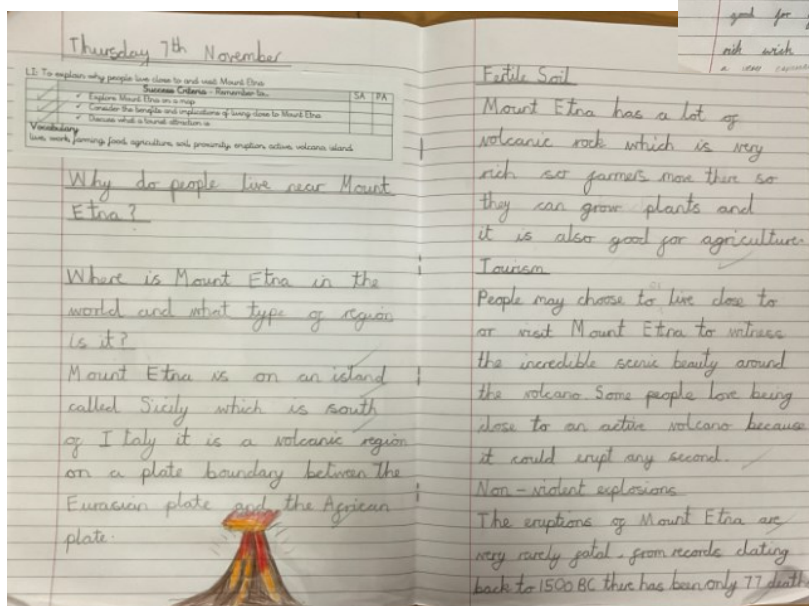 Thursday 7th November
LI: To explain why people live close to and visit Mount Etna
Success Criteria - Remember to...
SA PA
✓ Explore Mount Etna on a map
✓ Consider the benefits and implications of living close to Mount Etna
✓ Discuss what a tourist attraction is
Vocabulary
live, work, farming, food, agriculture, soil, proximity, eruption, active, volcano, island
Why do people live near Mount
Etna?
Where is Mount Etna in the
world and what type of region
is it?
Mount Etna is on an island
called Sicily which is south
of Italy it is a volcanic region
on a plate boundary between the
Eurasian plate and the African
plate.
Fertile Soil
Mount Etna has a lot of
volcanic rock which is very
rich so farmers move there so
they can grow plants and
it is also good for agriculture.
Tourism
People may choose to live close to
or visit Mount Etna to witness
the incredible scenic beauty around
the volcano. Some people love being
close to an active volcano because
it could erupt any second.
Non-violent explosions
The eruptions of Mount Etna are
very rarely fatal. from records dating
back to 1500 BC there has been only 77 death
good for
rich wich
a very